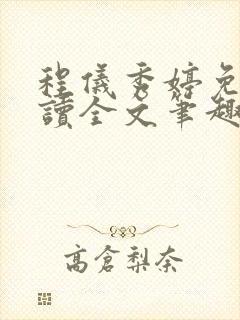 程儀秀婷免
讀全文筆趣
高倉梨奈